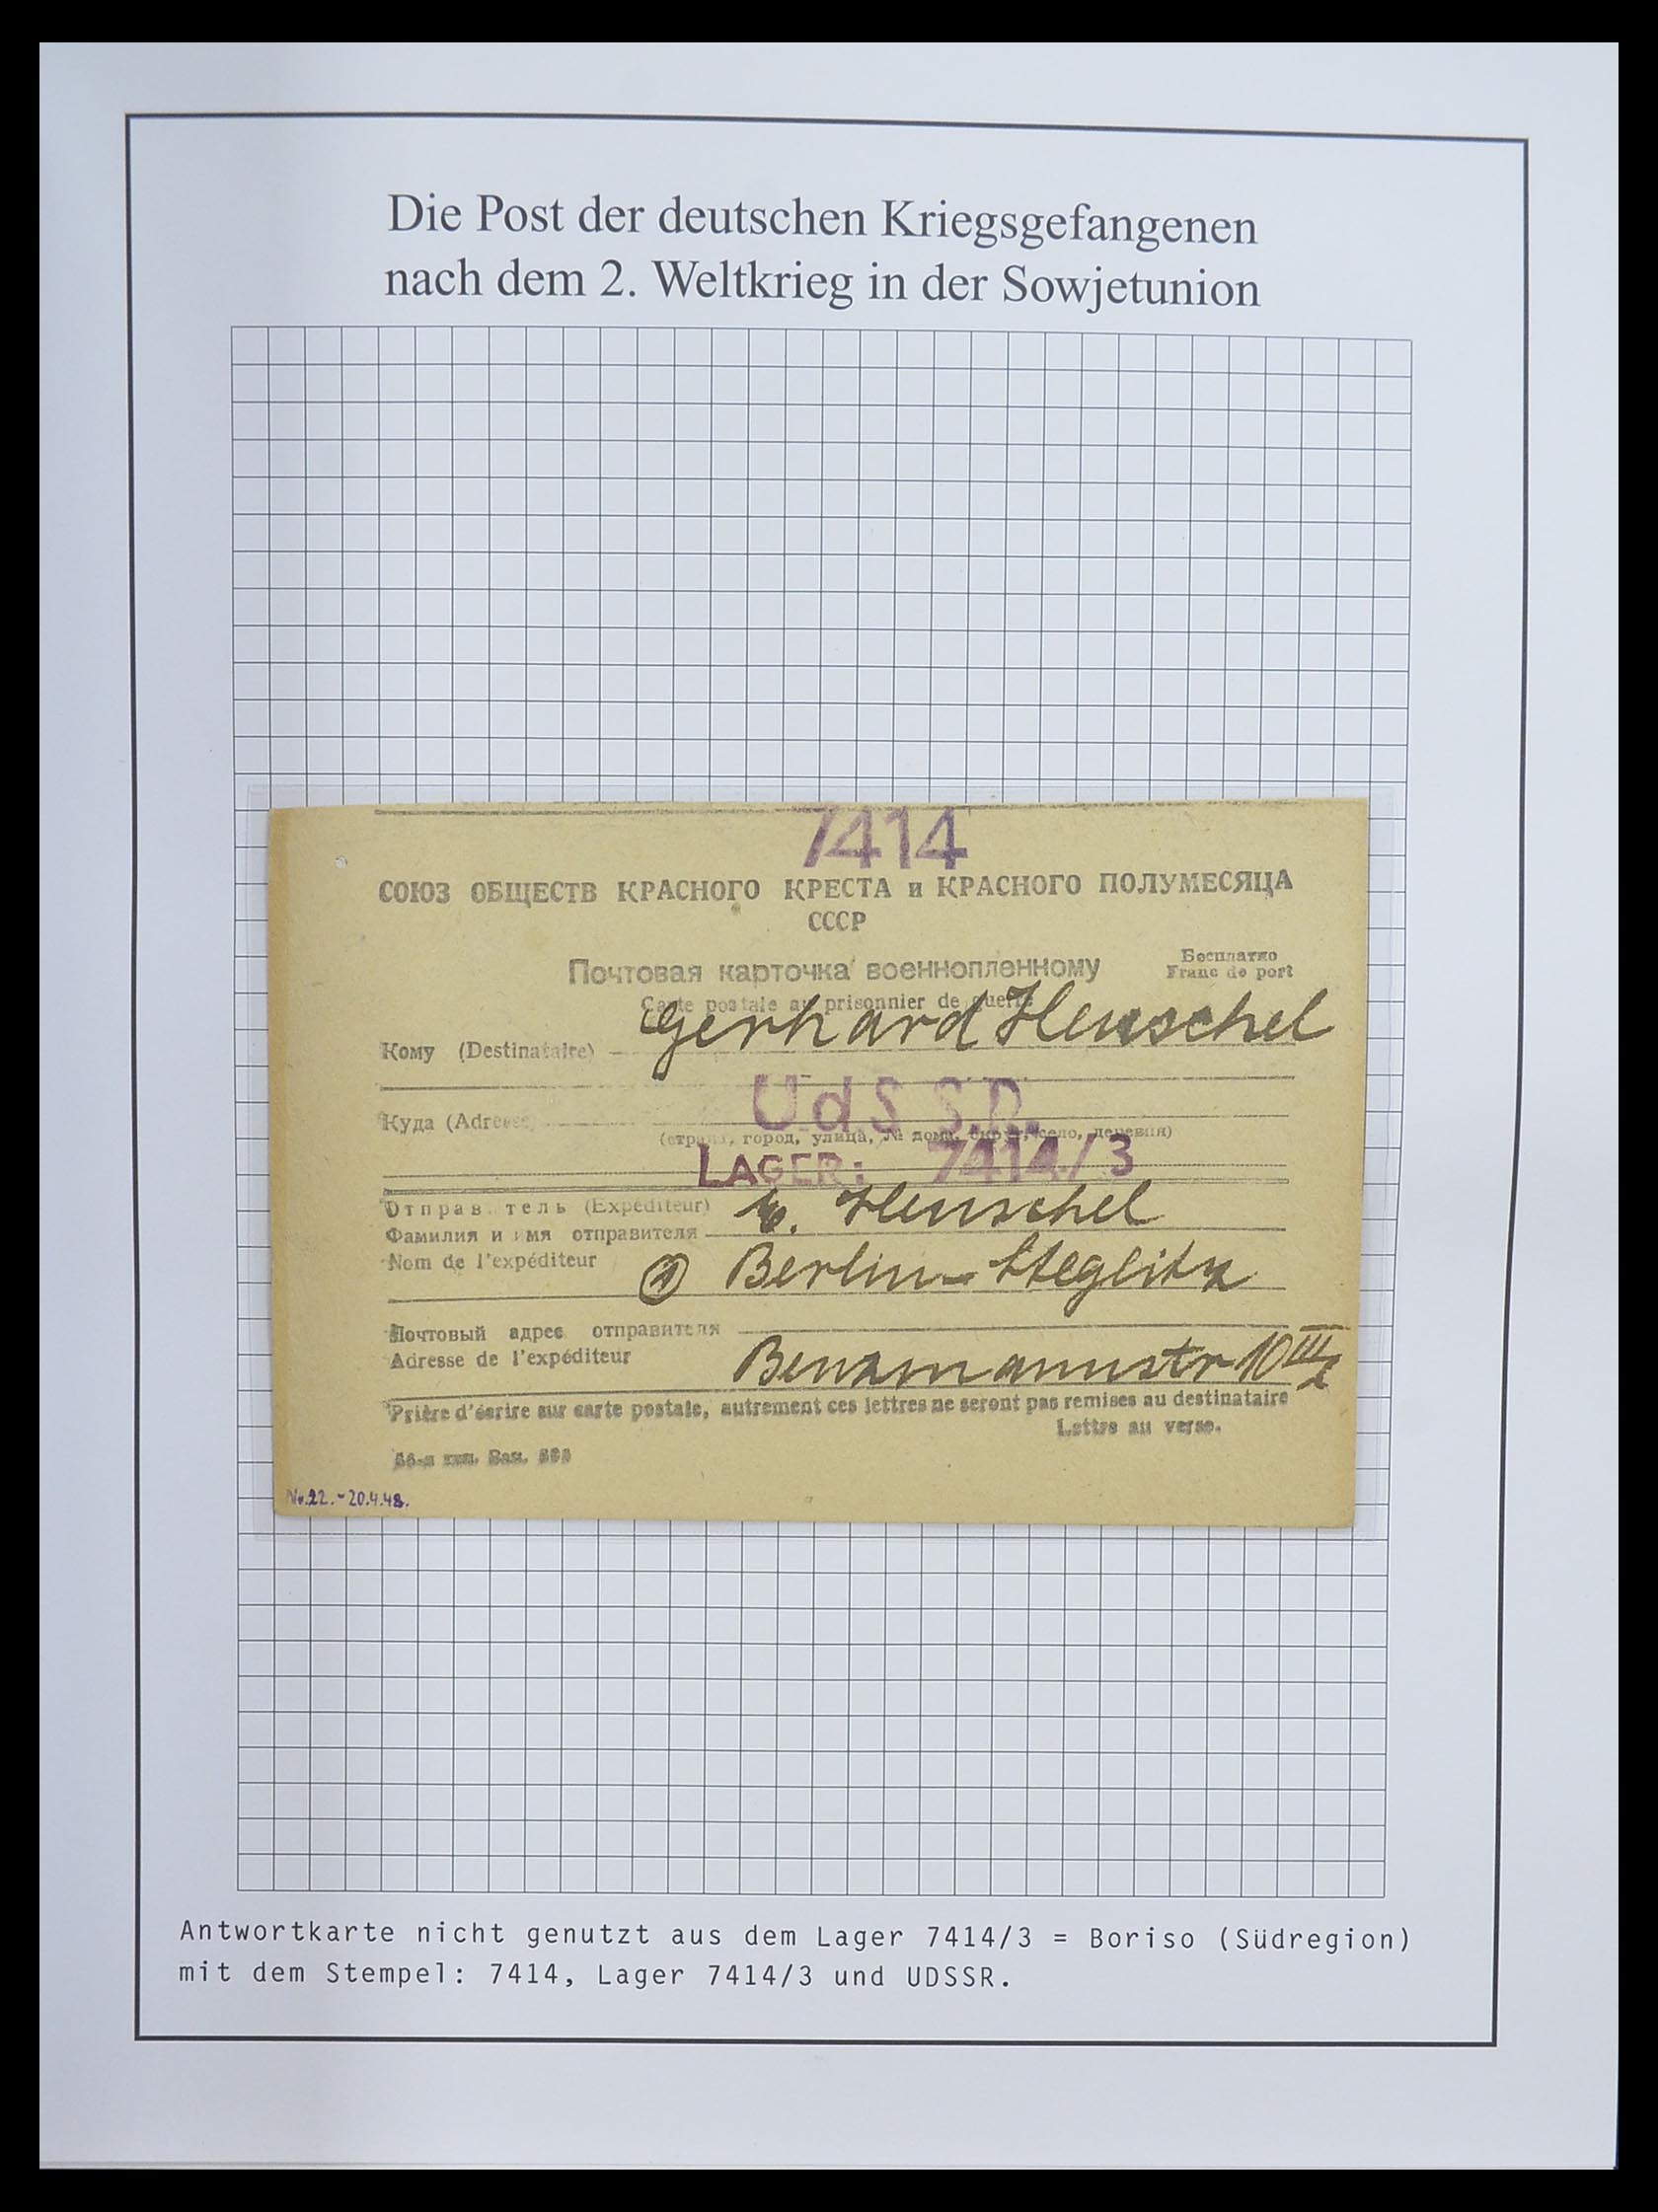 Die Post der deutschen Kriegsgefangenen
nach dem 2. Weltkrieg in der Sowjetunion
7414
СОЮЗ ОБЩЕСТВ КРАСНОГО КРЕСТА и КРАСНОГО ПОЛУМЕСЯЦА
СССР
Почтовая карточка военнопленному
Бесплатно
Franc de port
Carte postale au prisonnier de guerre
Gerhard Henschel
Кому (Destinataire)
UdSSR.
Куда (Adresse)
(страна, город, улица, № дома, округ, село, деревня)
LAGER: 7414/3
Отправитель (Expéditeur)
Henschel
Фамилия и имя отправителя
Nom de l'expéditeur
① Berlin-Steglitz
Почтовый адрес отправителя
Adresse de l'expéditeur
Benzmannstr 10 III
Prière d'écrire sur carte postale, autrement ces lettres ne seront pas remises au destinataire
Lettre au verso.
No.22.-20.4.48.
Antwortkarte nicht genutzt aus dem Lager 7414/3 = Boriso (Südregion)
mit dem Stempel: 7414, Lager 7414/3 und UDSSR.